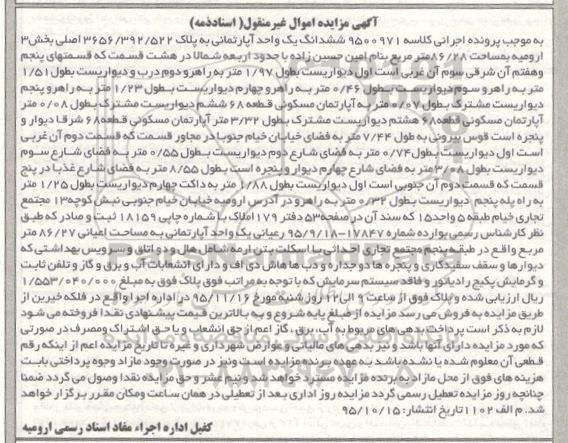 آگهی مزایده اموال غیرمنقول( اسنادذمه)
به موجب پرونده اجرائی کلاسه ۹۵۰۰۹۷۱ ششدانگ یک واحد آپارتمانی به پلاک ۳۶۵۶/۳۹۲/۵۲۲ اصلی بخش۳
ارومیه بمساحت ۸۶/۲۸ متر مربع بنام امین حسین زاده با حدود اربعه شمالا در هشت قسمت که قسمتهای پنجم
وهفتم آن شرقی سوم آن غربی است اول دیواریست بطول ۱/۹۷ متر به راهرو دوم درب و دیواریست بطول ۱/۵۱
متر به راهرو سوم دیواریست بطول ۰/۴۶ متر به راهرو چهارم دیواریست بطول ۱/۲۳ متر به راهرو پنجم
دیواریست مشترک بطول ۰/۰۷ متر به آپارتمان مسکونی قطعه ۶۸ ششم دیواریست مشترک بطول ۰/۰۸ متر
آپارتمان مسکونی قطعه۶۸ هشتم دیواریست مشترک بطول ۳/۳۲ متر آپارتمان مسکونی قطعه۶۸ شرقا دیوار و
پنجره است قوس بیرونی به طول ۷/۴۴ متر به فضای خیابان خیام جنوبا در مجاور قسمت که قسمت دوم آن غربی
است اول دیواریست بطول ۰/۷۴ متر به فضای شارع دوم دیواریست بطول ۰/۵۵ متر به فضای شارع سوم
دیواریست بطول ۳/۰۸ متر به فضای شارع چهارم دیوار و پنجره است بطول ۸/۵۵ متر به فضای شارع غذبا در پنج
قسمت که قسمت دوم آن جنوبی است اول دیواریست بطول ۱/۸۸ متر به داکت چهارم دیواریست بطول ۱/۲۵ متر
به راه پله پنجم دیواریست بطول ۰/۳۲ متر به راهرو در آدرس ارومیه خیابان خیام جنوبی نبش کوچه۱۳ مجتمع
تجاری خیام طبقه ۵ واحد۱۵ که سند آن در صفحه۵۳ دفتر ۱۷۹املاک با شماره چاپی ۱۸۱۵۹ ثبت و صادر که طبق
نظر کارشناس رسمی بوارده شماره ۱۷۸۴۷-۹۵/۹/۱۸ رعیانی یک واحد آپارتمانی به مساحت اعیانی ۸۶/۲۷ متر
مربع واقع در طبقه پنجم مجتمع تجاری احداثی با اسکلت بتن ارمه شامل هال و دو اتاق و سرویس بهداشتی که
دیوارها و سقف سفیدکاری و پنجره ها دو جداره و درب ها هاش دی اف و دارای انشعابات آب و برق و گاز و تلفن ثابت
و گرمایش پکیج رادیاتور و فاقد سیستم سرمایش که با توجه به مراتب فوق پلاک فوق به مبلغ ۱/۵۵۳/۰۴۰/۰۰۰
ریال ارزیابی شده و پلاک فوق از ساعت ۹ الی۱۲ روز شنبه مورخ ۹۵/۱۱/۱۶ در اداره اجرا واقع در فلکه خیرین از
طریق مزایده به فروش می رسد مزایده از مبلغ پایه شروع و به بالاترین قیمت پیشنهادی نقدا فروخته می شود
لازم به ذکر است پرداخت بدهی های مربوط به آب، برق ، گاز اعم از حق انشعاب و یا حق اشتراک ومصرف در صورتی
که مورد مزایده دارای آنها باشد و نیز بدهی های مالیاتی و عوارض شهرداری و غیره تا تاریخ مزایده اعم از اینکه رقم
قطعی آن معلوم شده یا نشده باشد به عهده برنده مزایده است ونیز در صورت وجود مازاد وجوه پرداختی بابت
هزینه های فوق از محل مازاد به برنده مزایده مسترد خواهد شد و نیم عشر و حق مزایده نقدا وصول می گردد ضمنا
چنانچه روز مزایده تعطیل رسمی گردد مزایده روز اداری بعد از تعطیلی در همان ساعت ومکان مقرر برگزار خواهد
شد. م الف ۱۱۰۲ تاریخ انتشار: ۹۵/۱۰/۱۵
کفیل اداره اجراء مفاد اسناد رسمی ارومیه